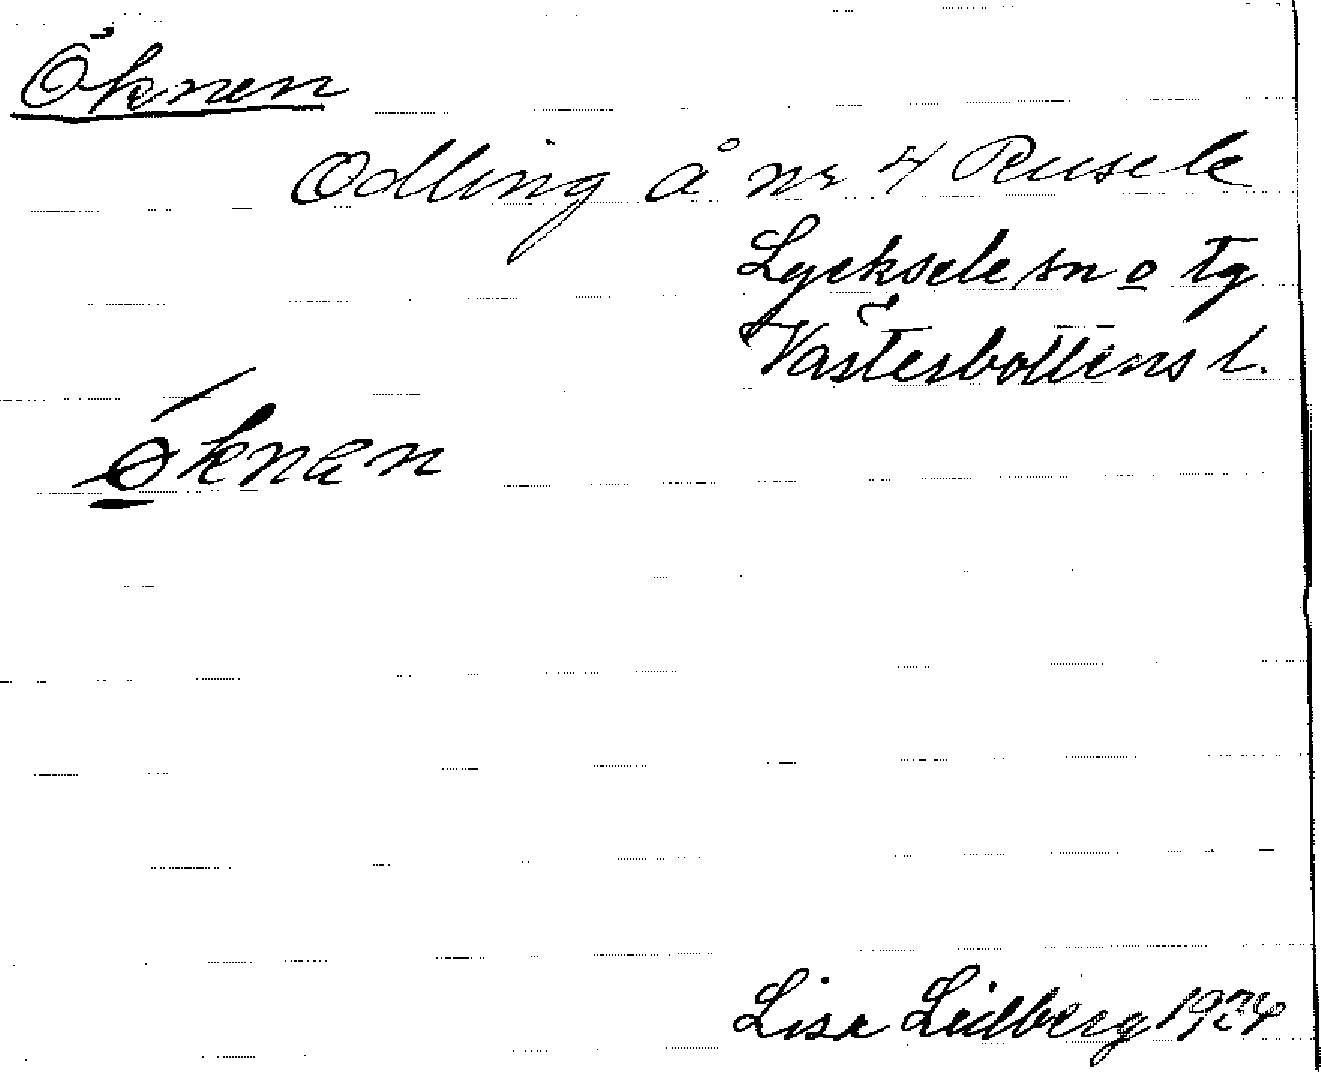 Öknen
Odling å nr 4 Rusele
Lycksele sn o tg
Västerbottens l.
Lisa Lidberg 1924